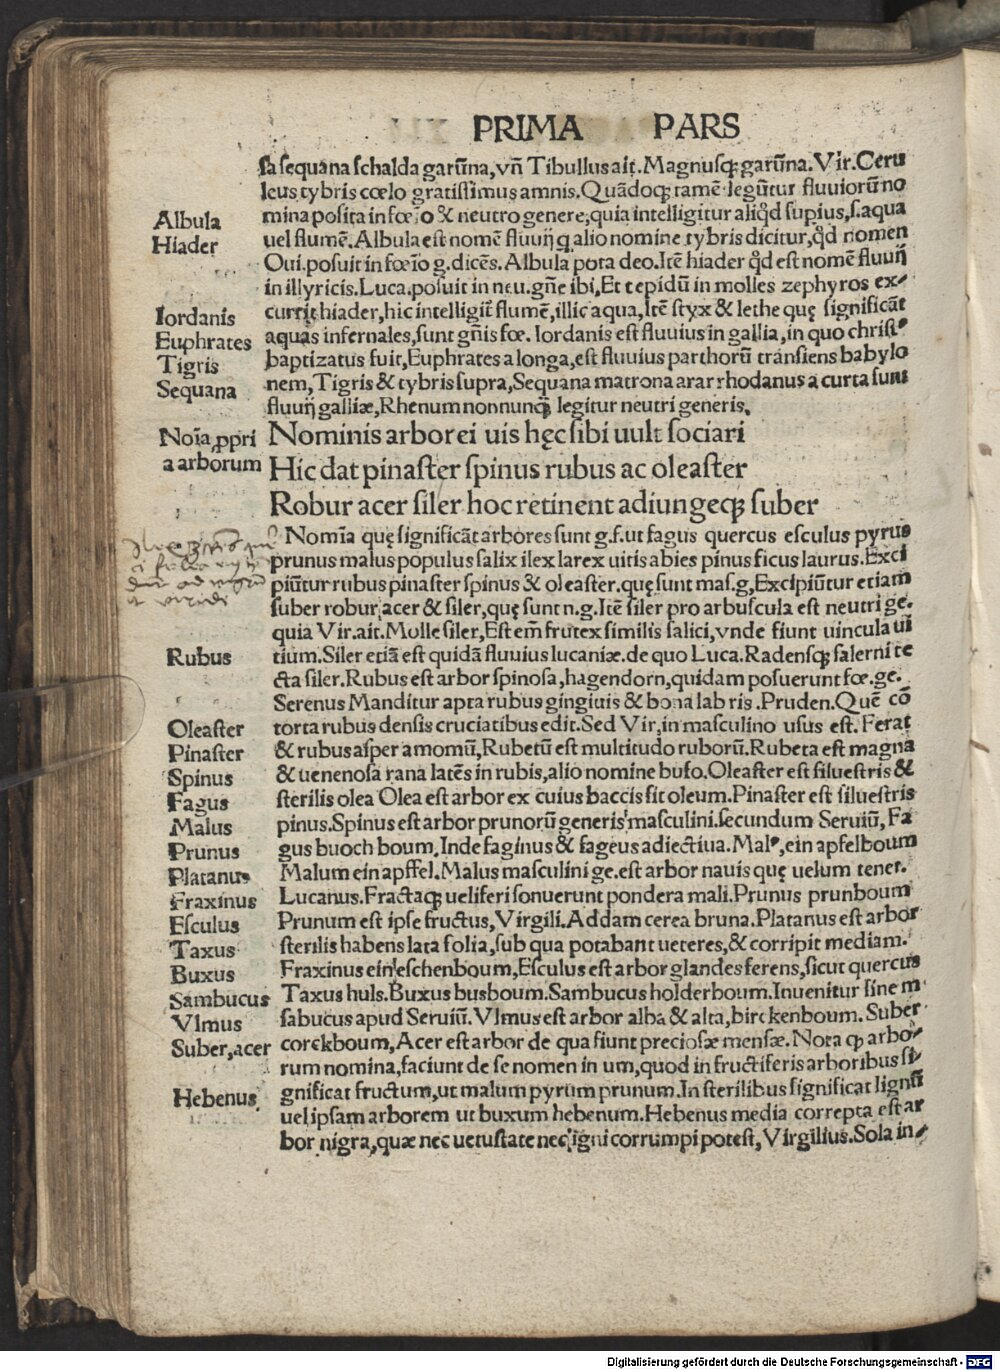 PRIMA PARS
sa sequana schalda garūna, vn̄ Tibullus ait. Magnusq; garūna. Vir. Ceru
leus tybris cœlo gratissimus amnis. Quādoq; tamē legūtur fluuiorū no
Albula mina posita in fœīo & neutro genere, quia intelligitur aliq̄d supius, s. aqua
Hiader uel flumē. Albula est nomē fluuij q alio nomine tybris dicitur, q̄d nomen
Oui. posuit in fœīo g. dicēs. Albula pota deo. Itē hiader q̄d est nomē fluuij
in illyricis. Luca. posuit in neu. gn̄e ibi, Et tepidū in molles zephyros ex-
Iordanis currit hiader, hic intelligit̄ flumē, illic aqua, Itē styx & lethe quę significāt
Euphrates aquas infernales, sunt gn̄is fœ. Iordanis est fluuius in gallia, in quo christꝰ
Tigris baptizatus fuit, Euphrates a longa, est fluuius parthorū transiens babylo
Sequana nem, Tigris & tybris supra, Sequana matrona arar rhodanus a curta sunt
fluuij galliæ, Rhenum nonnunq̄ legitur neutri generis.
Noīa ꝓpri Nominis arborei uis hęc sibi uult sociari
a arborum Hic dat pinaster spinus rubus ac oleaster
Robur acer siler hoc retinent adiungeq; suber
Nomīa quę significāt arbores sunt g. f. ut fagus quercus esculus pyrus
prunus malus populus salix ilex larex uitis abies pinus ficus laurus. Exci
piūtur rubus pinaster spinus & oleaster. quę sunt mas. g, Excipiūtur etiam
suber robur, acer & siler, quę sunt n. g. Itē siler pro arbuscula est neutri ge.
quia Vir. ait. Molle siler, Est em̄ frutex similis salici, vnde fiunt uincula ui
Rubus tium. Siler etiā est quidā fluuius lucaniæ. de quo Luca. Radensq; salerni te
cta siler. Rubus est arbor spinosa, hagendorn, quidam posuerunt fœ. ge.
Serenus Manditur apta rubus gingiuis & bona labris. Pruden. Quē cō
Oleaster torta rubus densis cruciatibus edit. Sed Vir, in masculino usus est. Ferat
Pinaster & rubus asper amomū, Rubetū est multitudo ruborū. Rubeta est magna
Spinus & uenenosa rana latēs in rubis, alio nomine bufo. Oleaster est siluestris &
Fagus sterilis olea Olea est arbor ex cuius baccis fit oleum. Pinaster est siluestris
Malus pinus. Spinus est arbor prunorū generis masculini. secundum Seruiū, Fa
Prunus gus buoch boum. Inde faginus & fageus adiectiua. Malꝰ, ein apfelboum
Platanus Malum ein apffel. Malus masculini ge. est arbor nauis quę uelum tenet.
Fraxinus Lucanus. Fractaq; ueliferi sonuerunt pondera mali. Prunus prunboum
Esculus Prunum est ipse fructus, Virgili. Addam cerea bruna. Platanus est arbor
Taxus sterilis habens lata folia, sub qua potabant ueteres, & corripit mediam.
Buxus Fraxinus ein eschenboum, Esculus est arbor glandes ferens, sicut quercus
Sambucus Taxus huls. Buxus busboum. Sambucus holderboum. Inuenitur sine m
Vlmus sabucus apud Seruiū. Vlmus est arbor alba & alta, birckenboum. Suber
Suber, acer corckboum, Acer est arbor de qua fiunt preciosæ mensæ. Nota q arbo-
rum nomina, faciunt de se nomen in um, quod in fructiferis arboribus si-
Hebenus gnificat fructum, ut malum pyrum prunum. In sterilibus significat lignū
uel ipsam arborem ut buxum hebenum. Hebenus media correpta est ar
bor nigra, quæ nec uetustate nec igni corrumpi potest, Virgilius. Sola in-
Digitalisierung gefördert durch die Deutsche Forschungsgemeinschaft - DFG